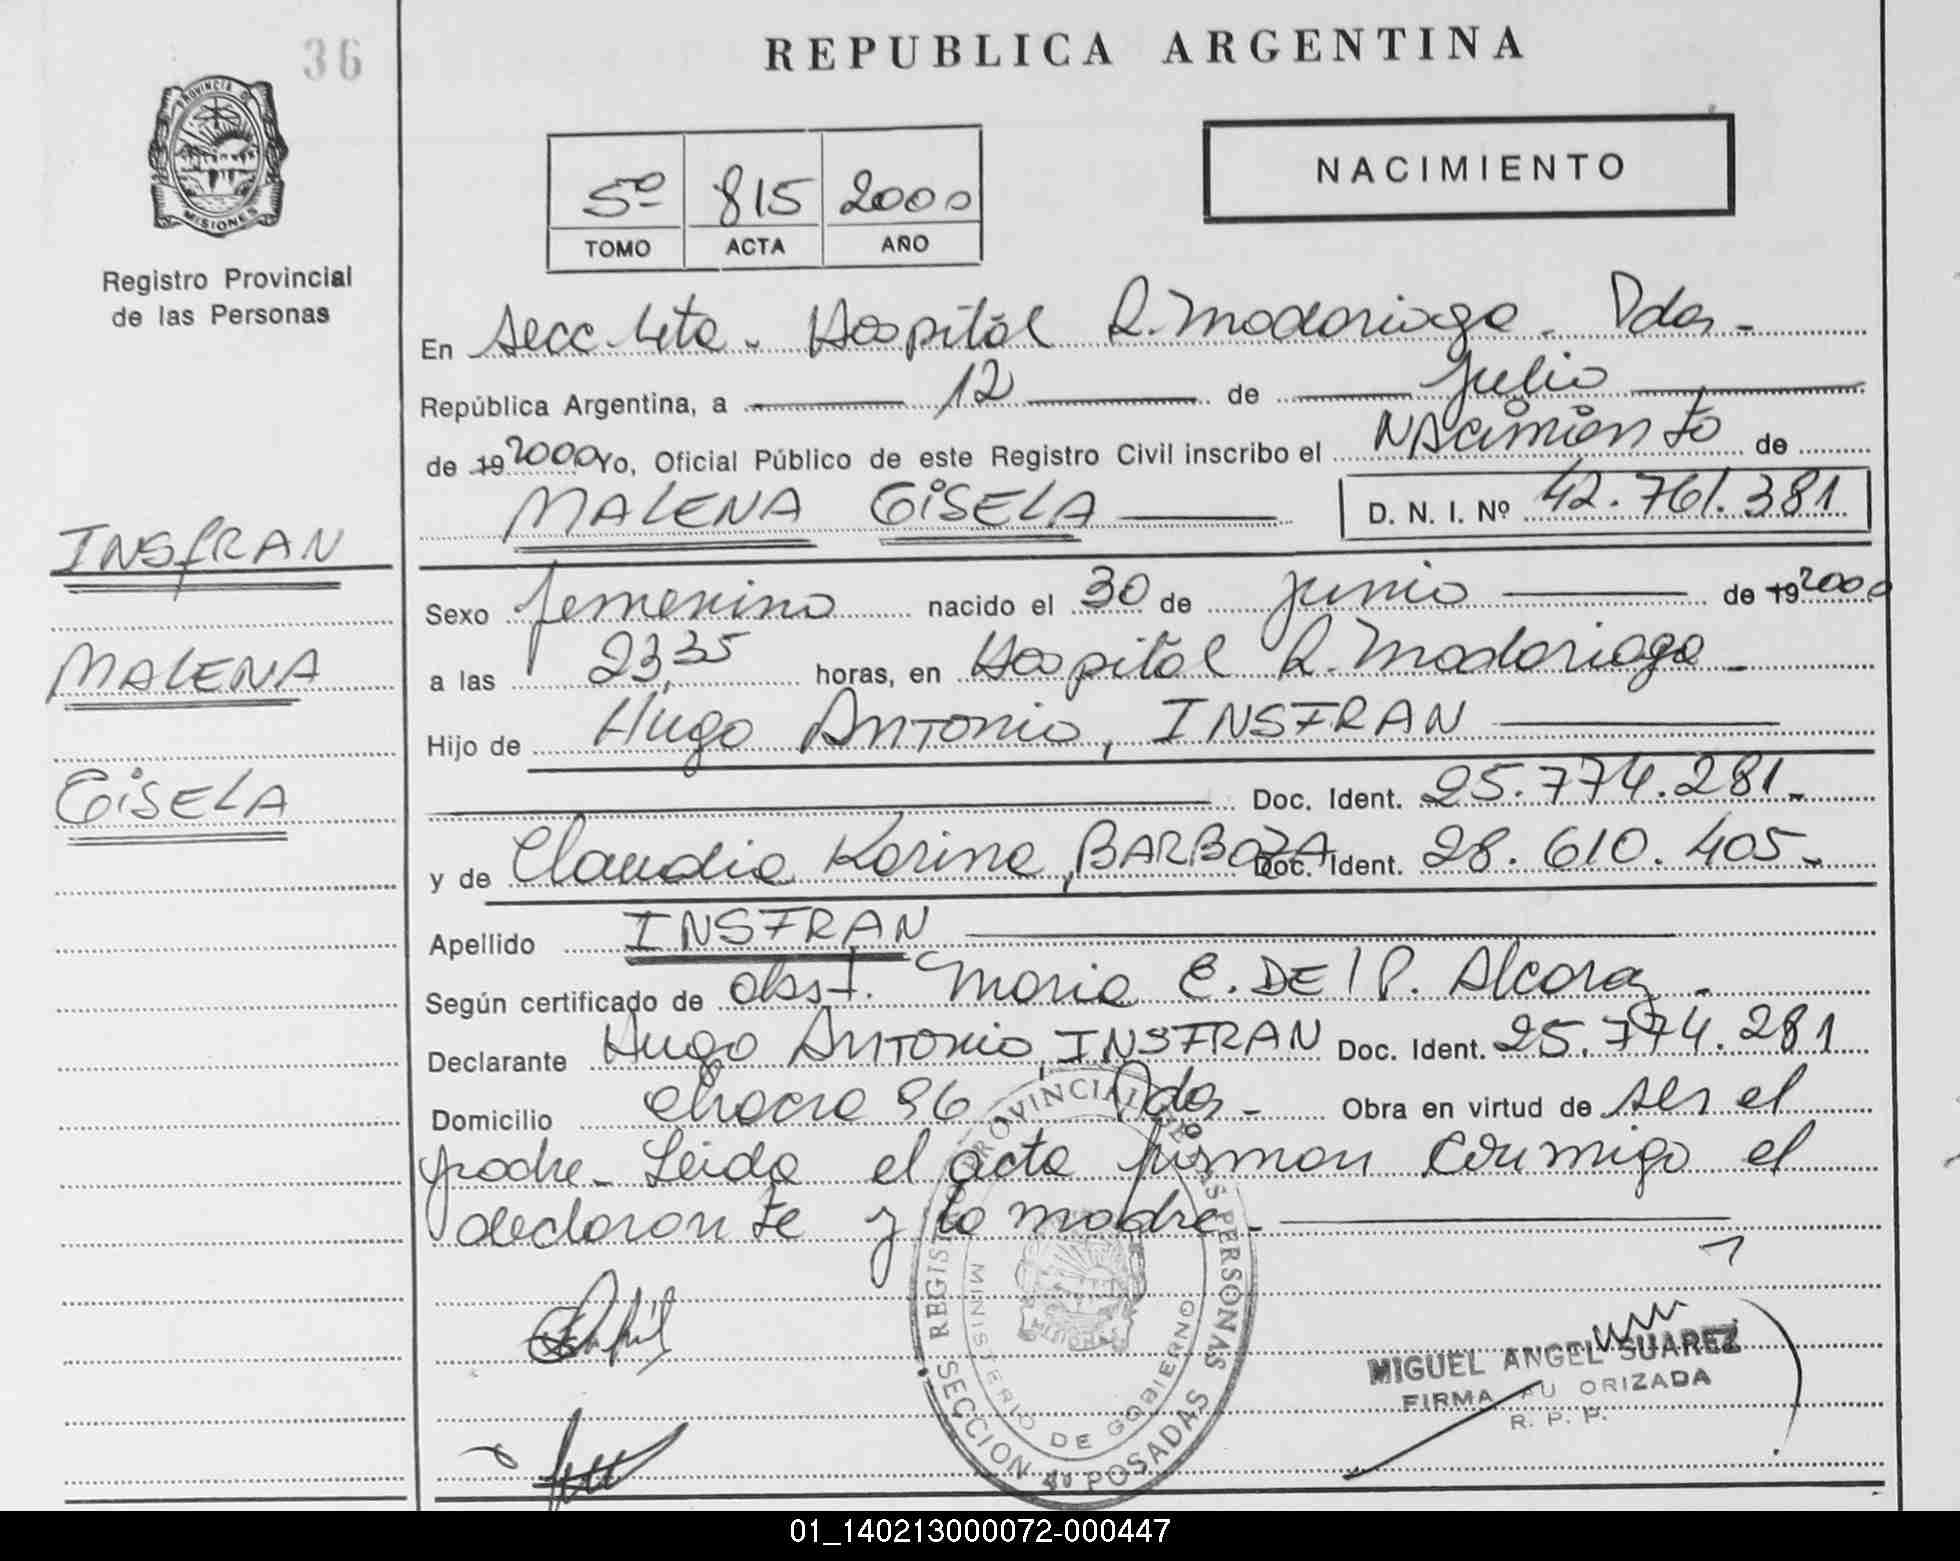 36
REPUBLICA ARGENTINA
PROVINCIA DE
MISIONES
Registro Provincial
de las Personas
5º 815 2000
TOMO ACTA AÑO
NACIMIENTO
En Secc 4ta - Hospital R. Madariaga - Pdas -
República Argentina, a 12 de Julio
de 19 2000 Yo, Oficial Público de este Registro Civil inscribo el NAcimiento de
MALENA GISELA D. N. I. Nº 42.761.381
INSfRAN
MALENA
GISELA
Sexo femenino nacido el 30 de junio de 19 2000
a las 23,35 horas, en Hospital R. Madariaga -
Hijo de Hugo Antonio, INSFRAN
Doc. Ident. 25.774.281 -
y de Claudia Karina, BARBOZA Doc. Ident. 28.610.405 -
Apellido INSFRAN
Según certificado de obst. Maria E. DEl P. Alcaraz -
Declarante Hugo Antonio, INSFRAN Doc. Ident. 25.774.281
Domicilio chacra 96 Pdas - Obra en virtud de ser el
padre - Leida el acta firman conmigo el
declarante y la madre -
REGISTRO PROVINCIAL DE LAS PERSONAS
MINISTERIO DE GOBIERNO
MISIONES
SECCION 4º POSADAS
MIGUEL ANGEL SUAREZ
FIRMA AU ORIZADA
R. P. P.
01_140213000072-000447